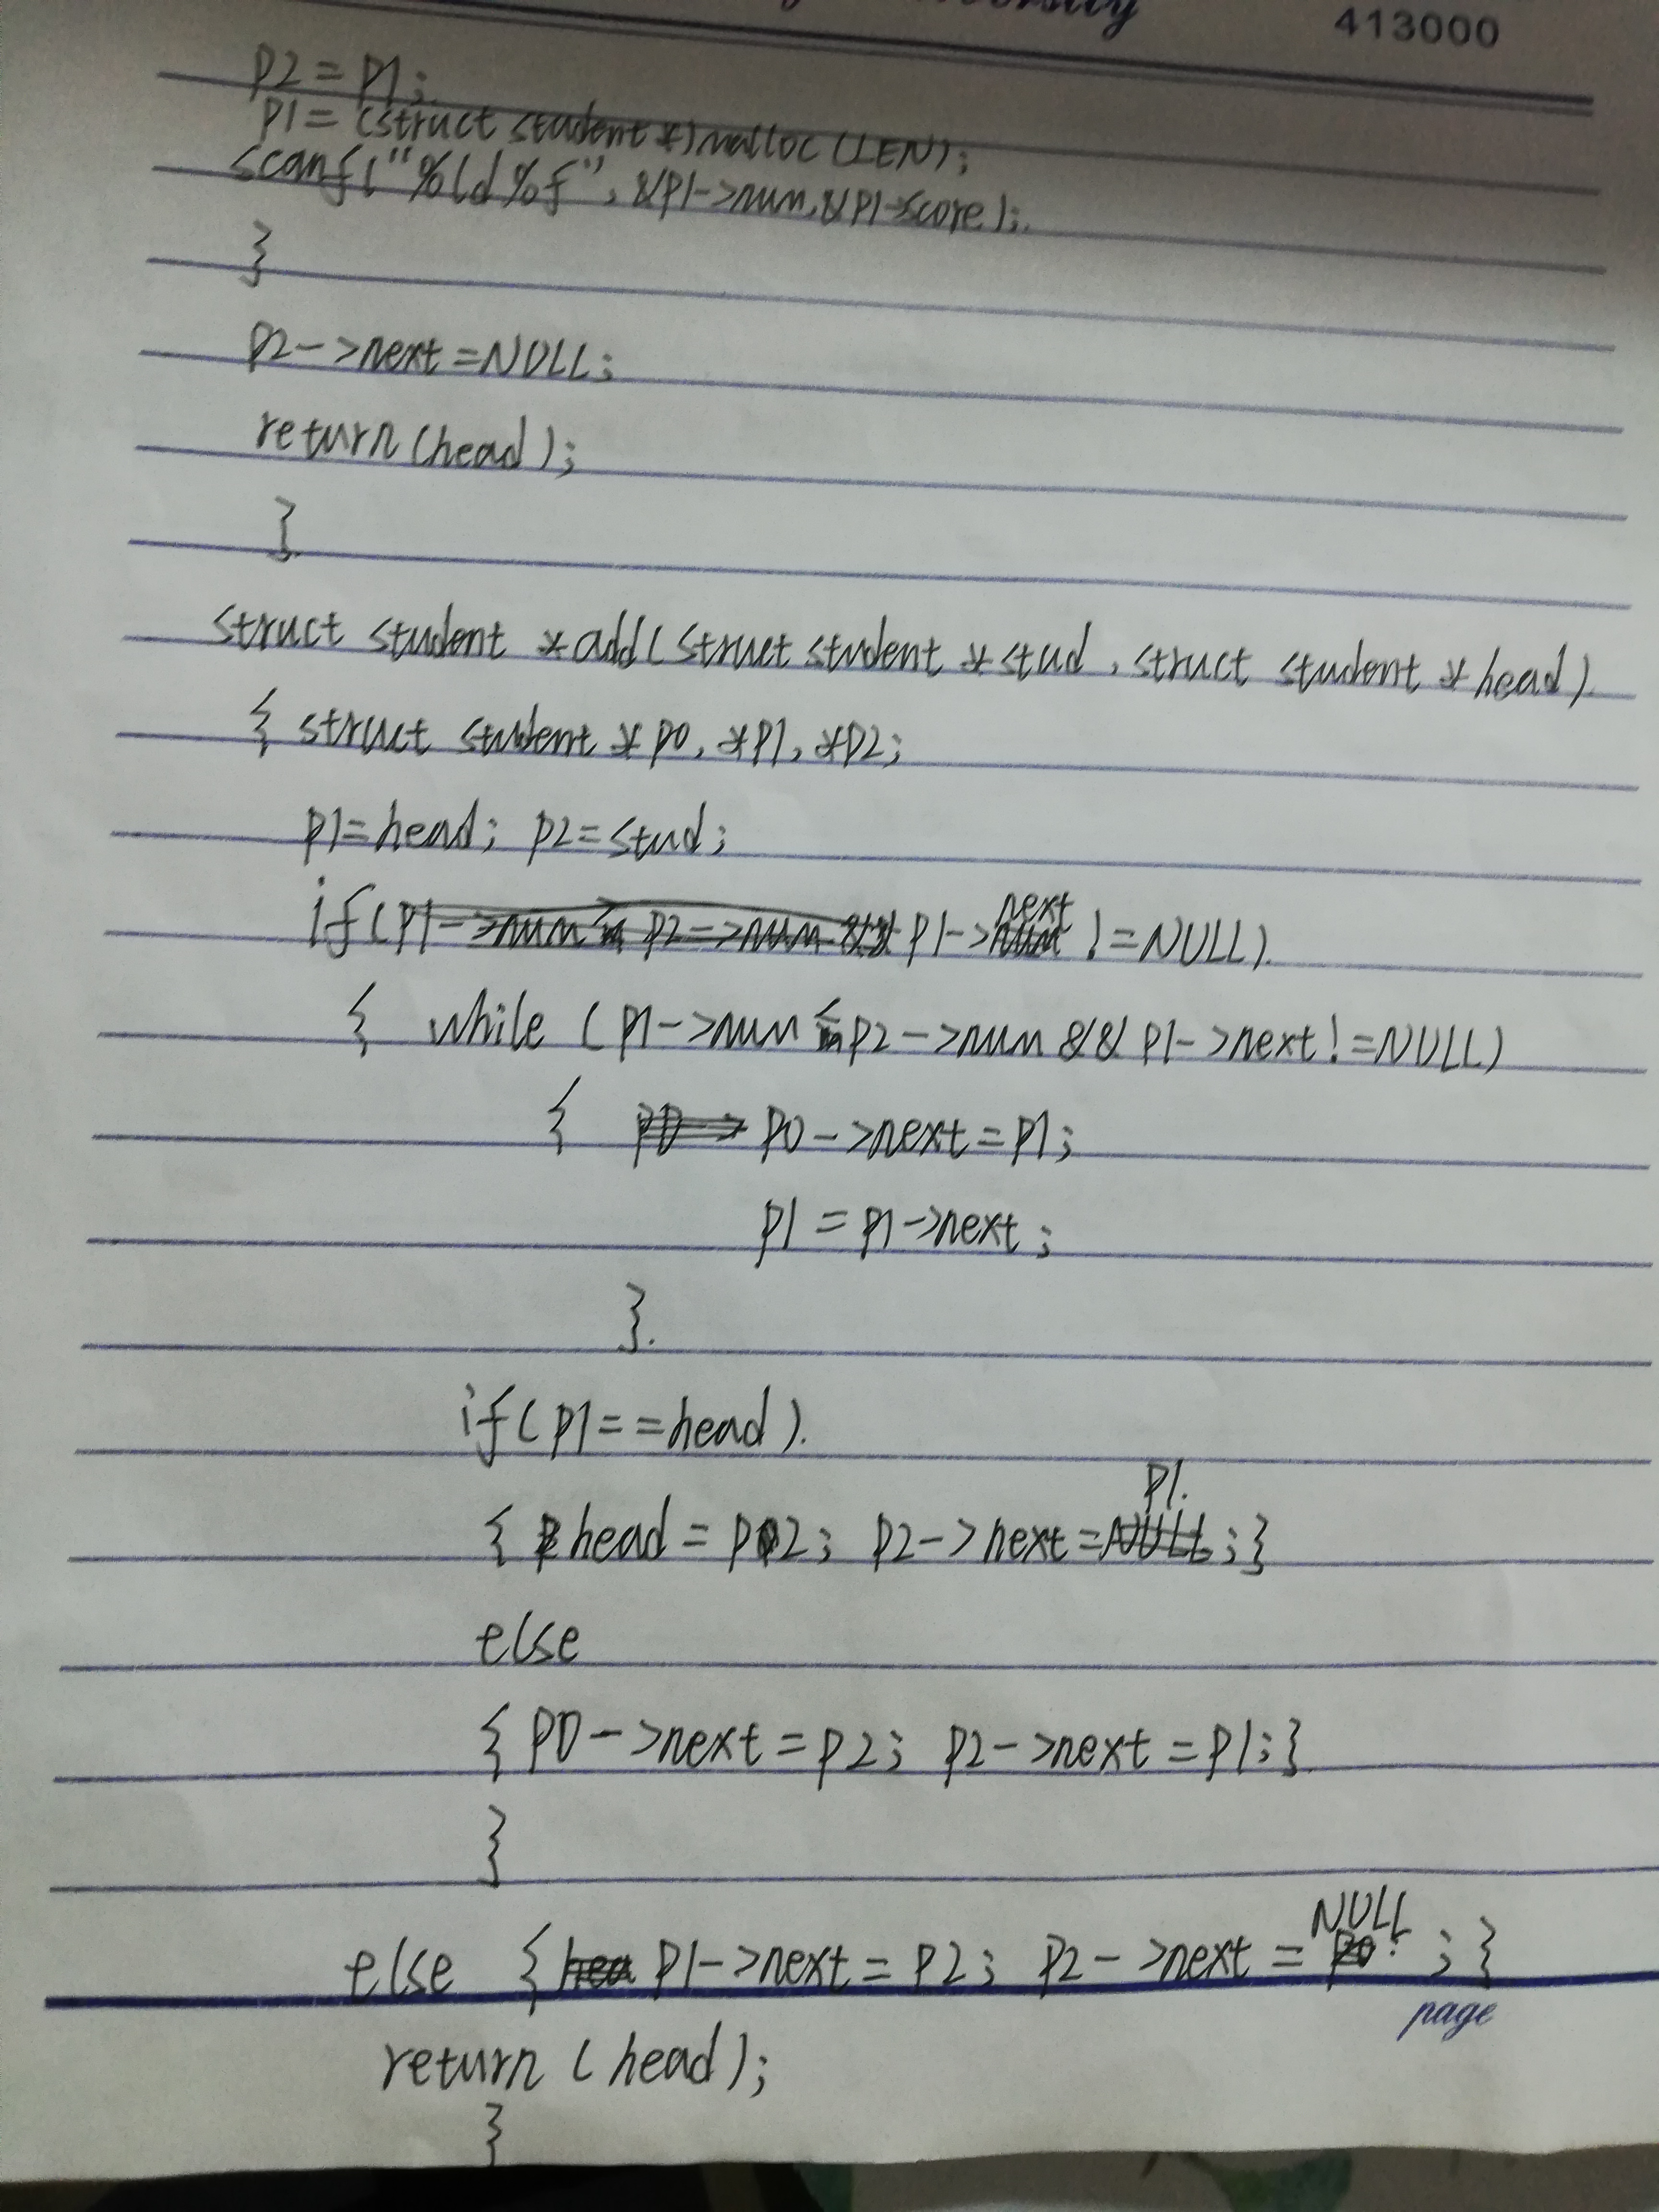 413000
p2=p1;
p1=(struct student *)malloc(LEN);
scanf("%ld%f",&p1->num,&p1->score);
}
p2->next=NULL;
return(head);
}
struct student *add(struct student *stud, struct student *head)
{ struct student *p0, *p1, *p2;
p1=head; p2=stud;
if(p1->next !=NULL)
{ while (p1->num < p2->num && p1->next!=NULL)
{ p0->next=p1;
p1=p1->next;
}
if(p1==head)
{ head=p2; p2->next=p1;}
else
{ p0->next=p2; p2->next=p1;}
}
else { p1->next=p2; p2->next=NULL;}
page
return (head);
}